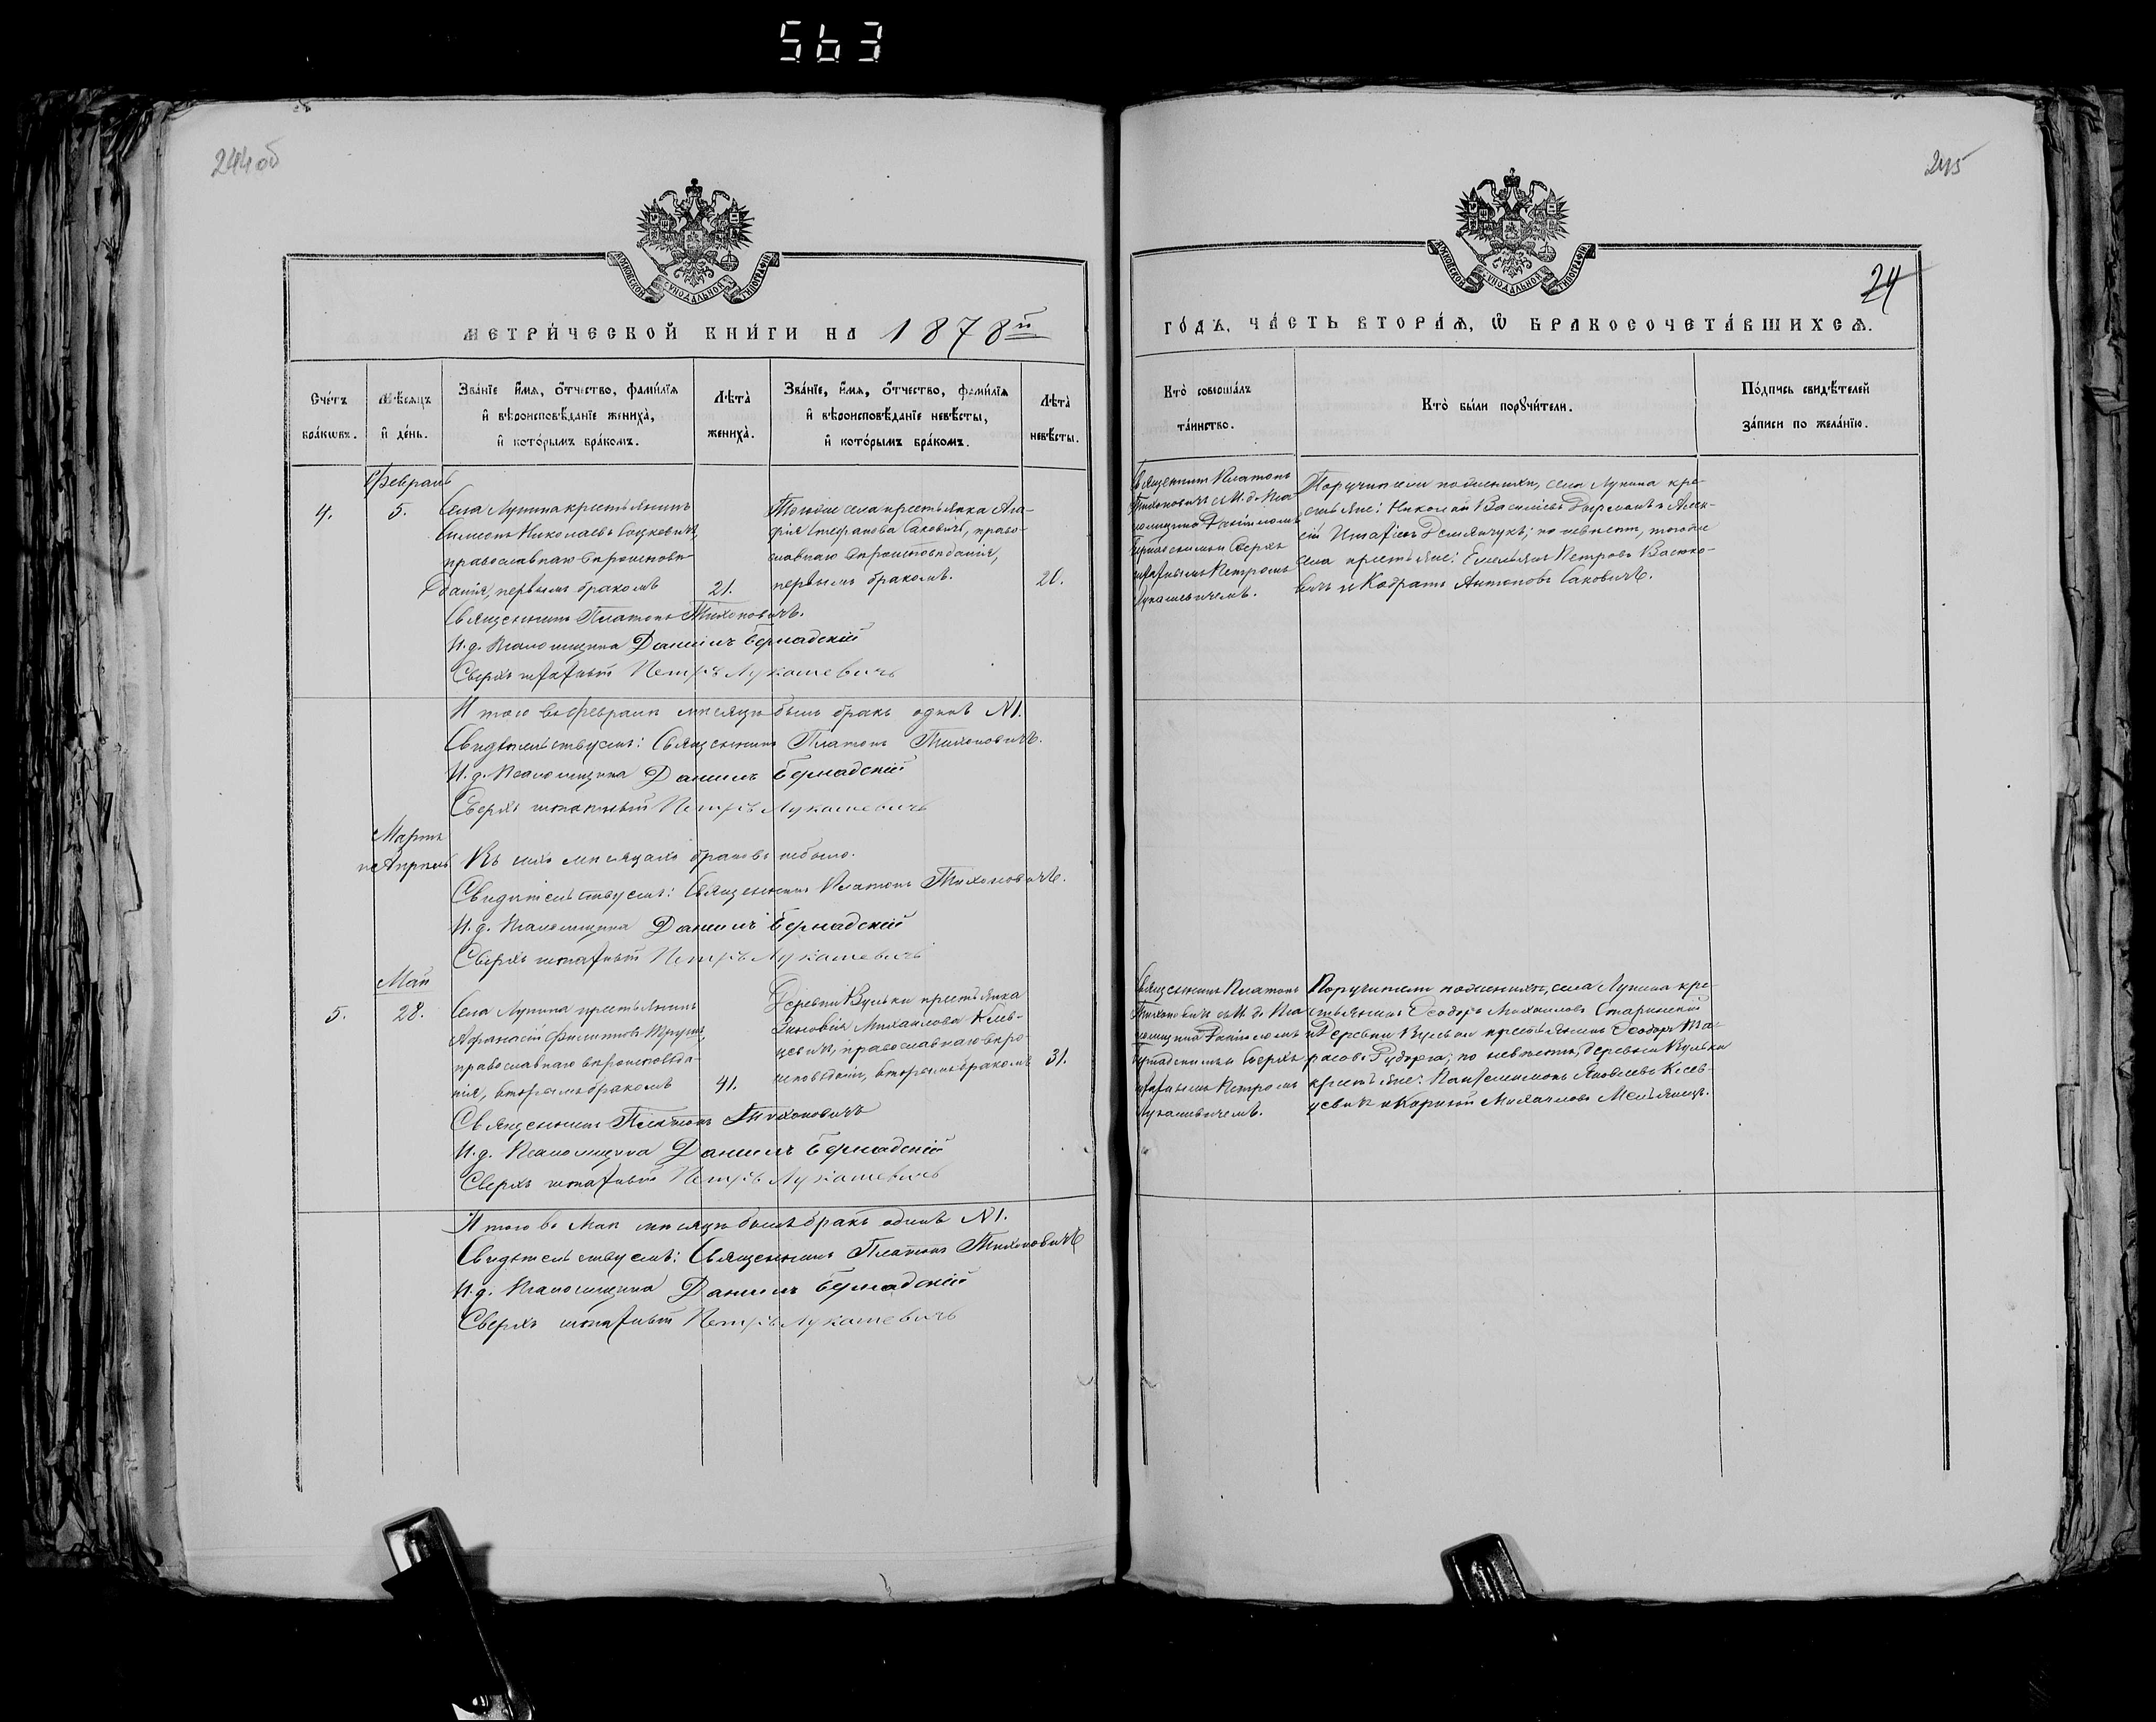 563
244 об
245
24
МЕТРИ́ЧЕСКОЙ КНИ́ГИ НА 1878й
ГО́ДЪ, ЧА́СТЬ ВТОРА́Ѧ, Ѽ БРАКОСОЧЕТА́ВШИХСѦ.
Сче́тъ бра́кѡвъ.
Мѣ́сѧцъ и҆ де́нь.
Зва́нїе и҆́мѧ, ѻ҆́тчество, фами́лїѧ
и҆ вѣроисповѣ́данїе жениха̀,
и҆ кото́рымъ бра́комъ.
Лѣта̀ жениха̀.
Зва́нїе, и҆́мѧ, ѻ҆́тчество, фами́лїѧ
и҆ вѣроисповѣ́данїе невѣ́сты,
и҆ кото́рымъ бра́комъ.
Лѣта̀ невѣ́сты.
Кто̀ соверша́лъ
та́инство.
Кто̀ бы́ли порꙋчи́тели.
По́дпись свидѣ́телей
за́писи по жела́нїю.
Февраль
4.
5.
Села Лунина крестьянинъ
Симеонъ Николаевъ
православнаго вѣроисповѣ-
данія, первымъ бракомъ
21.
Тогоже села крестьянка Ага-
фія Стефанова Саковичъ, право-
славнаго вѣроисповѣданія,
первымъ бракомъ.
20.
Священникъ Платонъ
Тихоновичъ съ И. д. Пса-
ломщика Даніиломъ
Бернадскимъ и Сверхъ
штатнымъ Петромъ
Лукашевичемъ.
Поручители по женихѣ, села Лунина кре-
стьяне: Николай Васильевъ и Алек-
сій Игнатьевъ Демянчукъ; по невѣстѣ, тогоже
села крестьяне: Емельянъ Петровъ Васюко-
вичъ и Кодратъ Антоновъ Саковичъ.
Священникъ Платонъ Тихоновичъ.
И. д. Псаломщика Даніилъ Бернадскій
Сверхъ штатный Петръ Лукашевичъ
Итого въ Февралѣ мѣсяцѣ былъ бракъ одинъ №1.
Свидѣтельствуемъ: Священникъ Платонъ Тихоновичъ.
И. д. Псаломщика Даніилъ Бернадскій
Сверхъ штатный Петръ Лукашевичъ
Мартъ
и Апрѣль
Въ сихъ мѣсяцахъ браковъ небыло.
Свидѣтельствуемъ: Священникъ Платонъ Тихоновичъ.
И. д. Псаломщика Даніилъ Бернадскій
Сверхъ штатный Петръ Лукашевичъ
Май
5.
28.
Села Лунина крестьянинъ
Афанасій Филиповъ
православнаго вѣроисповѣда-
нія, вторымъ бракомъ
41.
Деревни Вульки крестьянка
Зиновія Михаилова Клев-
цевичъ, православнаго вѣро-
исповѣданія, вторымъ бракомъ
31.
Священникъ Платонъ
Тихоновичъ съ И. д. Пса-
ломщика Даніиломъ
Бернадскимъ и Сверхъ
штатнымъ Петромъ
Лукашевичемъ.
Поручители по женихѣ, села Лунина кре-
стьянинъ Ѳеодоръ Михаиловъ Старинскій
и Деревни Вульки крестьянинъ Ѳеодоръ Та-
расовъ; по невѣстѣ, деревни Вульки
крестьяне: Пантелеимонъ Яковлевъ Клев-
цевичъ и Корнилій Михаиловъ Мельянецъ.
Священникъ Платонъ Тихоновичъ
И. д. Псаломщика Даніилъ Бернадскій
Сверхъ штатный Петръ Лукашевичъ
Итого въ Маѣ мѣсяцѣ былъ бракъ одинъ №1.
Свидѣтельствуемъ: Священникъ Платонъ Тихоновичъ
И. д. Псаломщика Даніилъ Бернадскій
Сверхъ штатный Петръ Лукашевичъ